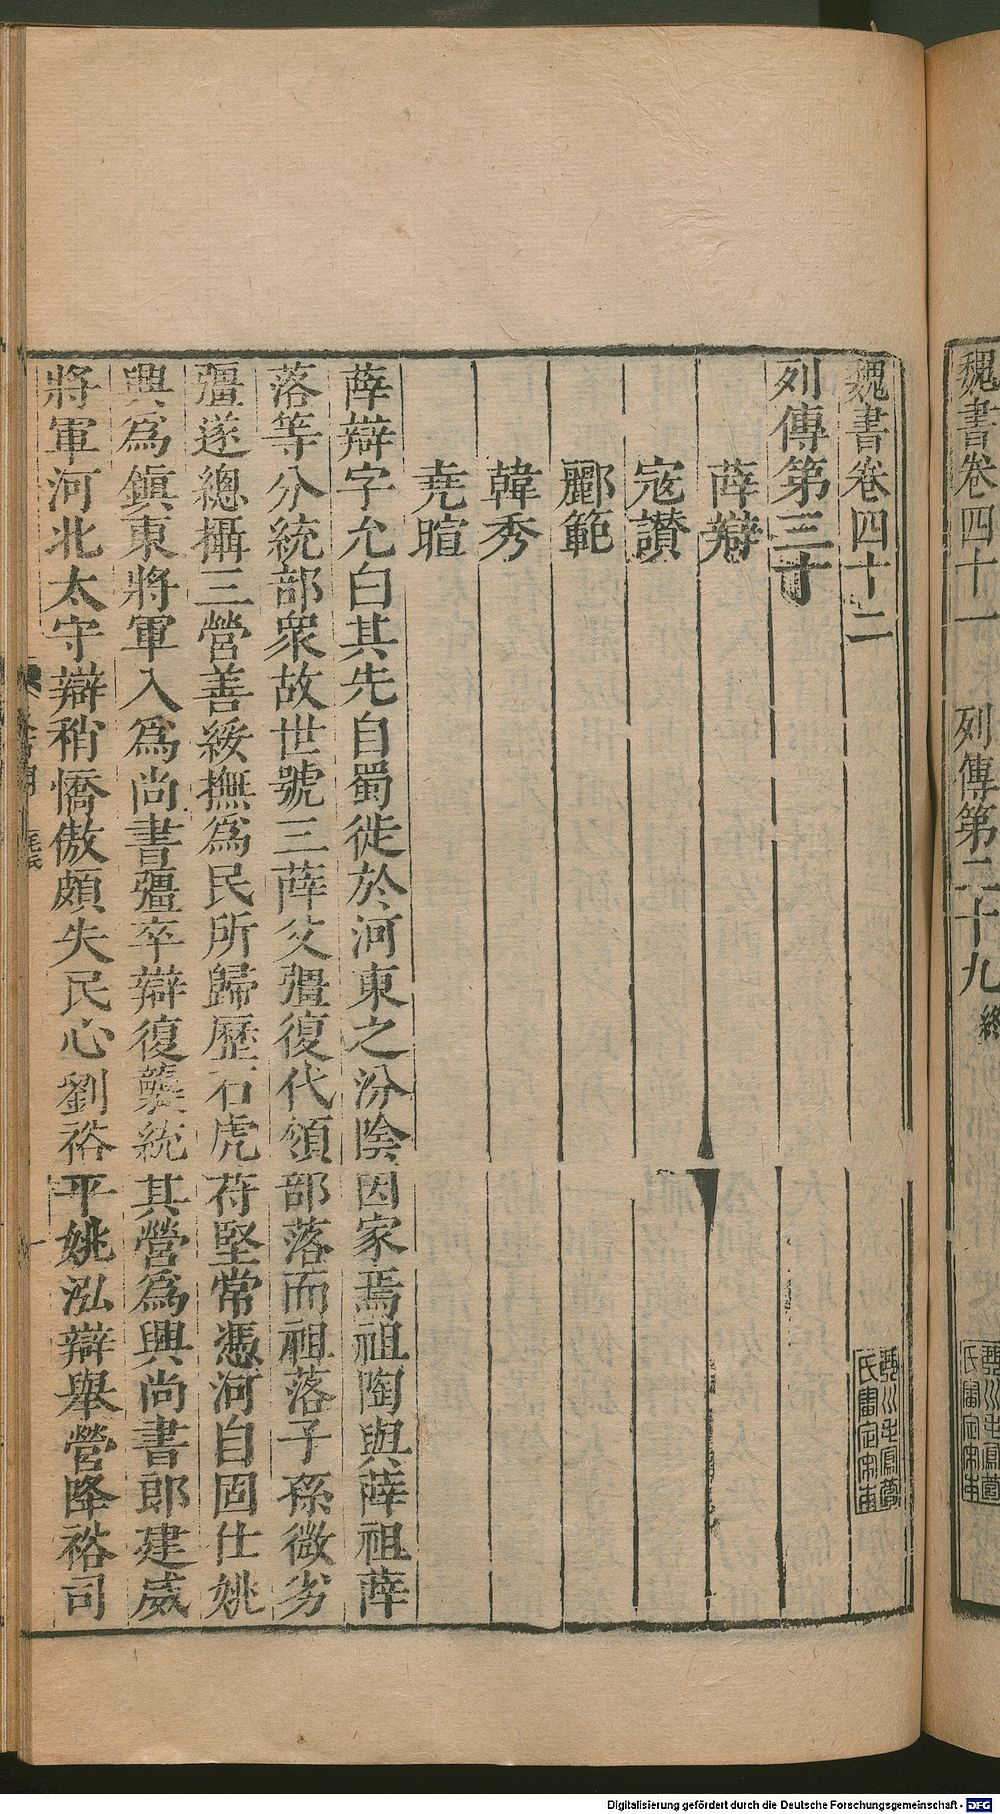 魏書卷四十一　列傳第二十九　終
魏書卷四十二
列傳第三十
薛辯
寇讚
酈範
韓秀
堯暄
薛辯字允白其先自蜀徙於河東之汾陰因家焉祖陶與薛祖薛
落等分統部衆故世號三薛父彊復代領部落而祖落子孫微劣
彊遂總攝三營善綏撫爲民所歸歷石虎苻堅常憑河自固仕姚
興爲鎮東將軍入爲尚書彊卒辯復襲統其營爲興尚書郎建威
將軍河北太守辯稍憍傲頗失民心劉裕平姚泓辯舉營降裕司
Digitalisierung gefördert durch die Deutsche Forschungsgemeinschaft - DFG